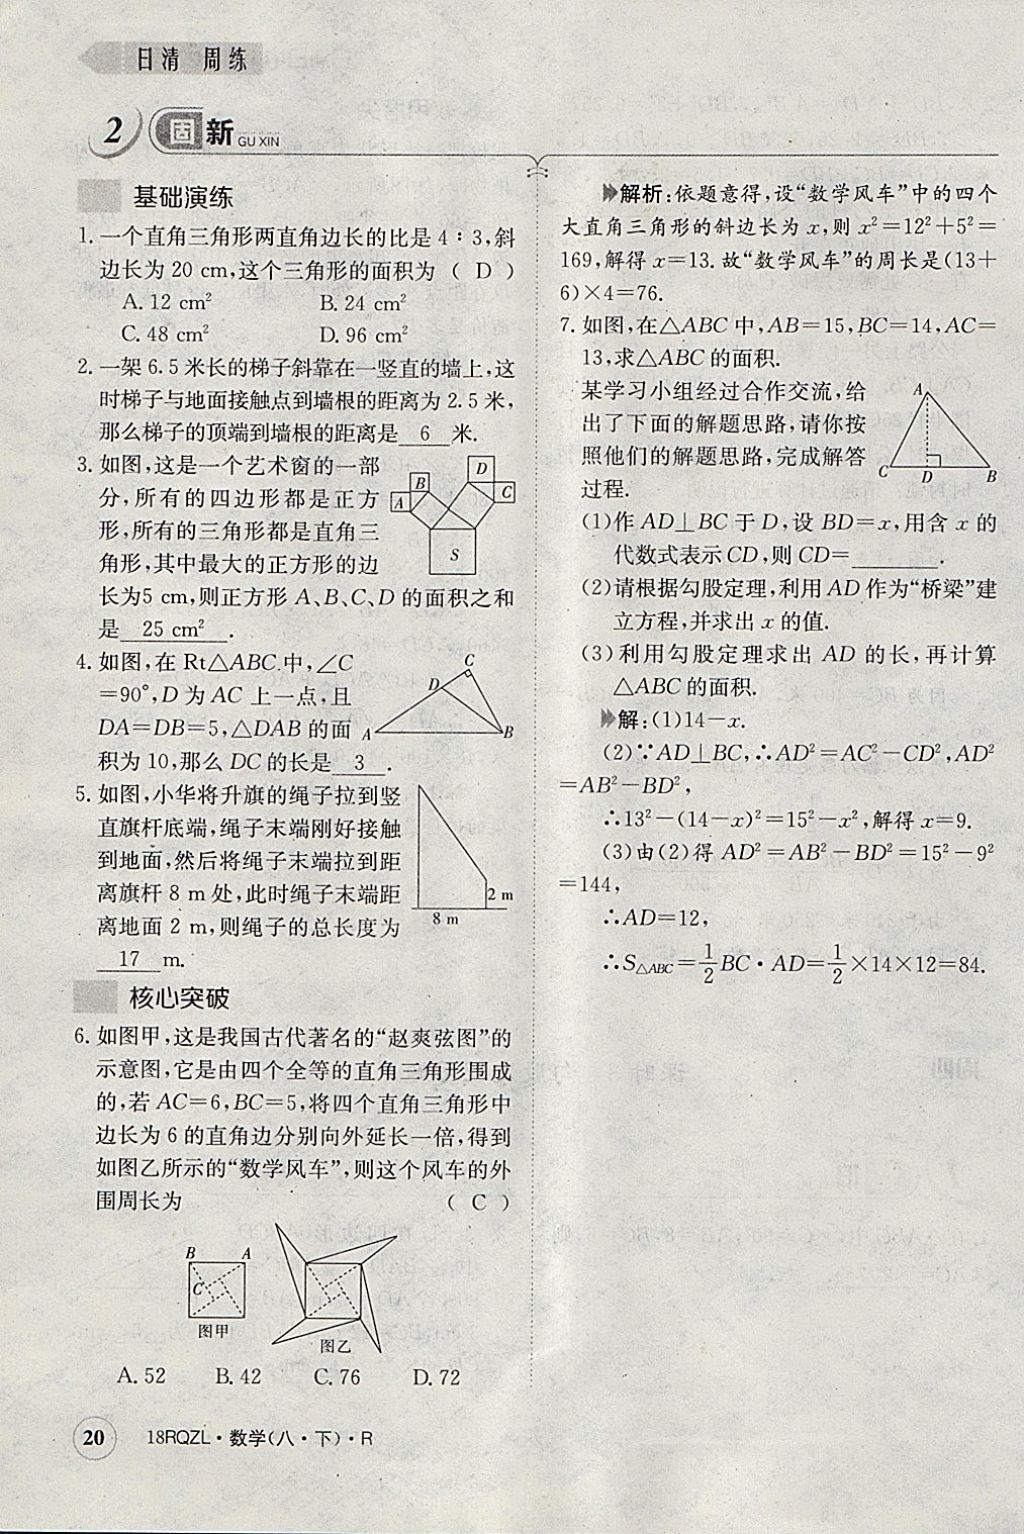 日清 周练
2 固新 GU XIN
基础演练
1. 一个直角三角形两直角边长的比是 4∶3,斜
边长为 20 cm,这个三角形的面积为 ( D )
A. 12 cm² B. 24 cm²
C. 48 cm² D. 96 cm²
2. 一架 6.5 米长的梯子斜靠在一竖直的墙上,这
时梯子与地面接触点到墙根的距离为 2.5 米,
那么梯子的顶端到墙根的距离是 6 米.
3. 如图,这是一个艺术窗的一部
分,所有的四边形都是正方
形,所有的三角形都是直角三
角形,其中最大的正方形的边
长为5 cm,则正方形 A、B、C、D 的面积之和
是 25 cm² .
A B D C S
4. 如图,在 Rt△ABC 中,∠C
=90°,D 为 AC 上一点,且
DA=DB=5,△DAB 的面
积为 10,那么 DC 的长是 3 .
C D A B
5. 如图,小华将升旗的绳子拉到竖
直旗杆底端,绳子末端刚好接触
到地面,然后将绳子末端拉到距
离旗杆 8 m 处,此时绳子末端距
离地面 2 m,则绳子的总长度为
17 m.
2 m
8 m
核心突破
6. 如图甲,这是我国古代著名的“赵爽弦图”的
示意图,它是由四个全等的直角三角形围成
的,若 AC=6,BC=5,将四个直角三角形中
边长为 6 的直角边分别向外延长一倍,得到
如图乙所示的“数学风车”,则这个风车的外
围周长为 ( C )
B A
C
图甲
图乙
A. 52 B. 42 C. 76 D. 72
解析:依题意得,设“数学风车”中的四个
大直角三角形的斜边长为 x,则 x²=12²+5²=
169,解得 x=13.故“数学风车”的周长是(13+
6)×4=76.
7. 如图,在△ABC 中,AB=15,BC=14,AC=
13,求△ABC 的面积.
某学习小组经过合作交流,给
出了下面的解题思路,请你按
照他们的解题思路,完成解答
过程.
A
C D B
(1)作 AD⊥BC 于 D,设 BD=x,用含 x 的
代数式表示 CD,则 CD= .
(2)请根据勾股定理,利用 AD 作为“桥梁”建
立方程,并求出 x 的值.
(3)利用勾股定理求出 AD 的长,再计算
△ABC 的面积.
解:(1)14-x.
(2)∵AD⊥BC,∴AD²=AC²-CD²,AD²
=AB²-BD²,
∴13²-(14-x)²=15²-x²,解得 x=9.
(3)由(2)得 AD²=AB²-BD²=15²-9²
=144,
∴AD=12,
∴S△ABC=1/2 BC·AD=1/2×14×12=84.
20 18RQZL·数学(八·下)·R